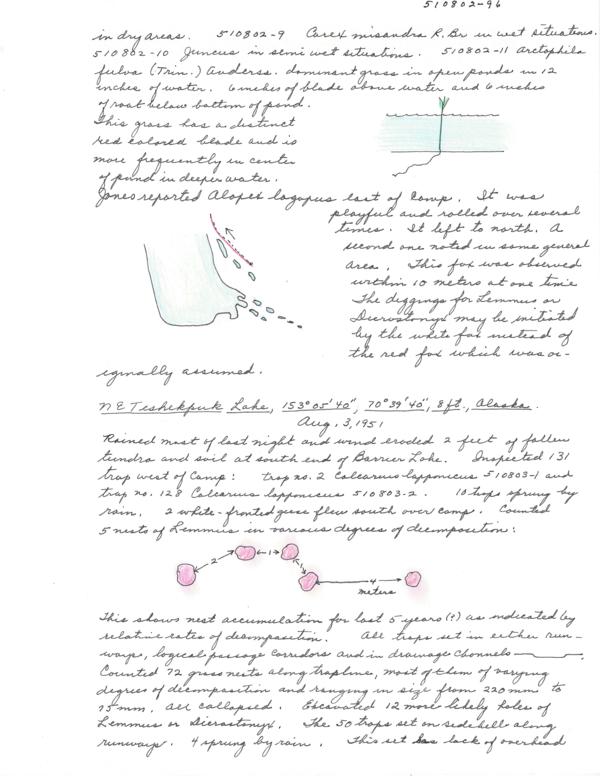 510802-96
in dry areas. 510802-9 Carex misandra R. Br in wet situations.
510802-10 Juncus in semi wet situations. 510802-11 Arctophila
fulva (Trin.) Anderss. dominant grass in open ponds in 12
inches of water. 6 inches of blade above water and 6 inches
of root below bottom of pond.
This grass has a distinct
red colored blade and is
more frequently in center
of pond in deeper water.
Jones reported Alopex lagopus east of camp. It was
playful and rolled over several
times. It left to north. A
second one noted in same general
area. This fox was observed
within 10 meters at one time
The diggings for Lemmus or
Dicrostonyx may be initiated
by the white fox instead of
the red fox which was or-
iginally assumed.
NE Teshekpuk Lake, 153° 05' 40", 70° 39' 40", 8 ft., Alaska.
Aug. 3, 1951
Rained most of last night and wind eroded 2 feet of fallen
tundra and soil at south end of Barrier Lake. Inspected 131
trap west of Camp: trap no. 2 Calcarius lapponicus 510803-1 and
trap no. 128 Calcarius lapponicus 510803-2. 10 traps sprung by
rain. 2 white-fronted geese flew south over camp. Counted
5 nests of Lemmus in various degrees of decomposition:
2 1 1 4
meters
This shows nest accumulation for last 5 years (?) as indicated by
relative rates of decomposition. All traps set in either run-
ways, logical passage corridors and in drainage channels
Counted 72 grass nests along trapline, most of them of varying
degrees of decomposition and ranging in size from 220 mm to
75 mm, all collapsed. Excavated 12 more likely holes of
Lemmus or Dicrostonyx. The 50 traps set on sidehill along
runways. 4 sprung by rain. This set has lack of overhead